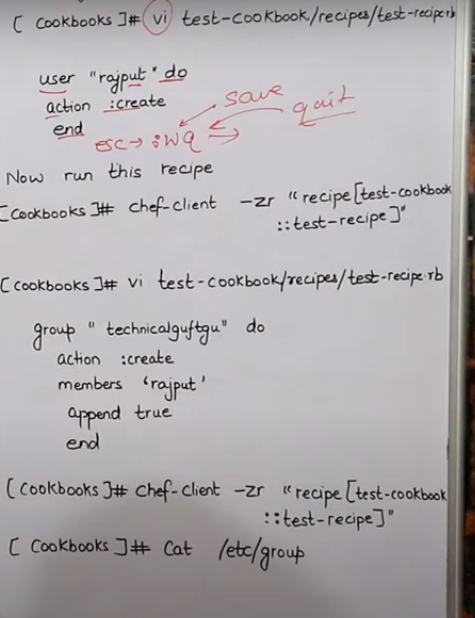 [ Cookbooks ]# vi test-cookbook/recipes/test-recipe.rb
user "rajput" do
action :create
end
save
quit
esc → :wq
Now run this recipe
[Cookbooks ]# chef-client -zr "recipe[test-cookbook
::test-recipe]"
[Cookbooks ]# vi test-cookbook/recipes/test-recipe.rb
group "technicalguftgu" do
action :create
members 'rajput'
append true
end
[Cookbooks ]# chef-client -zr "recipe[test-cookbook
::test-recipe]"
[ Cookbooks ]# Cat /etc/group